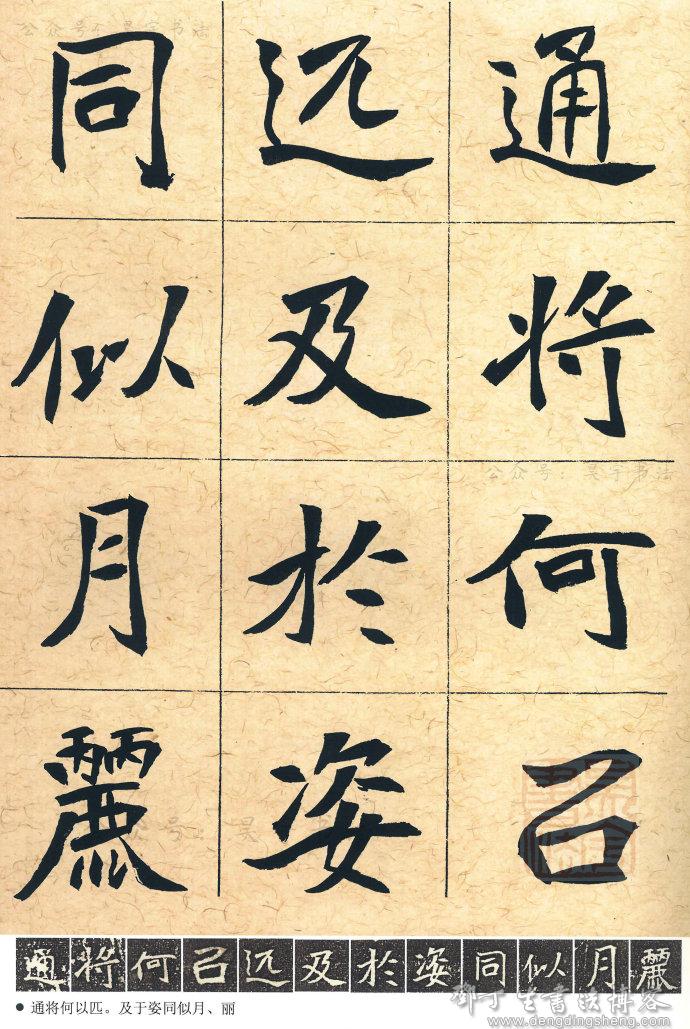 通将何以
匹及於姿
同似月麗
公众号：昊宇书法
公众号：昊宇书法
通将何以匹及於姿同似月麗
● 通将何以匹。及于姿同似月、丽
邓丁生书法博客
www.dengdingsheng.com